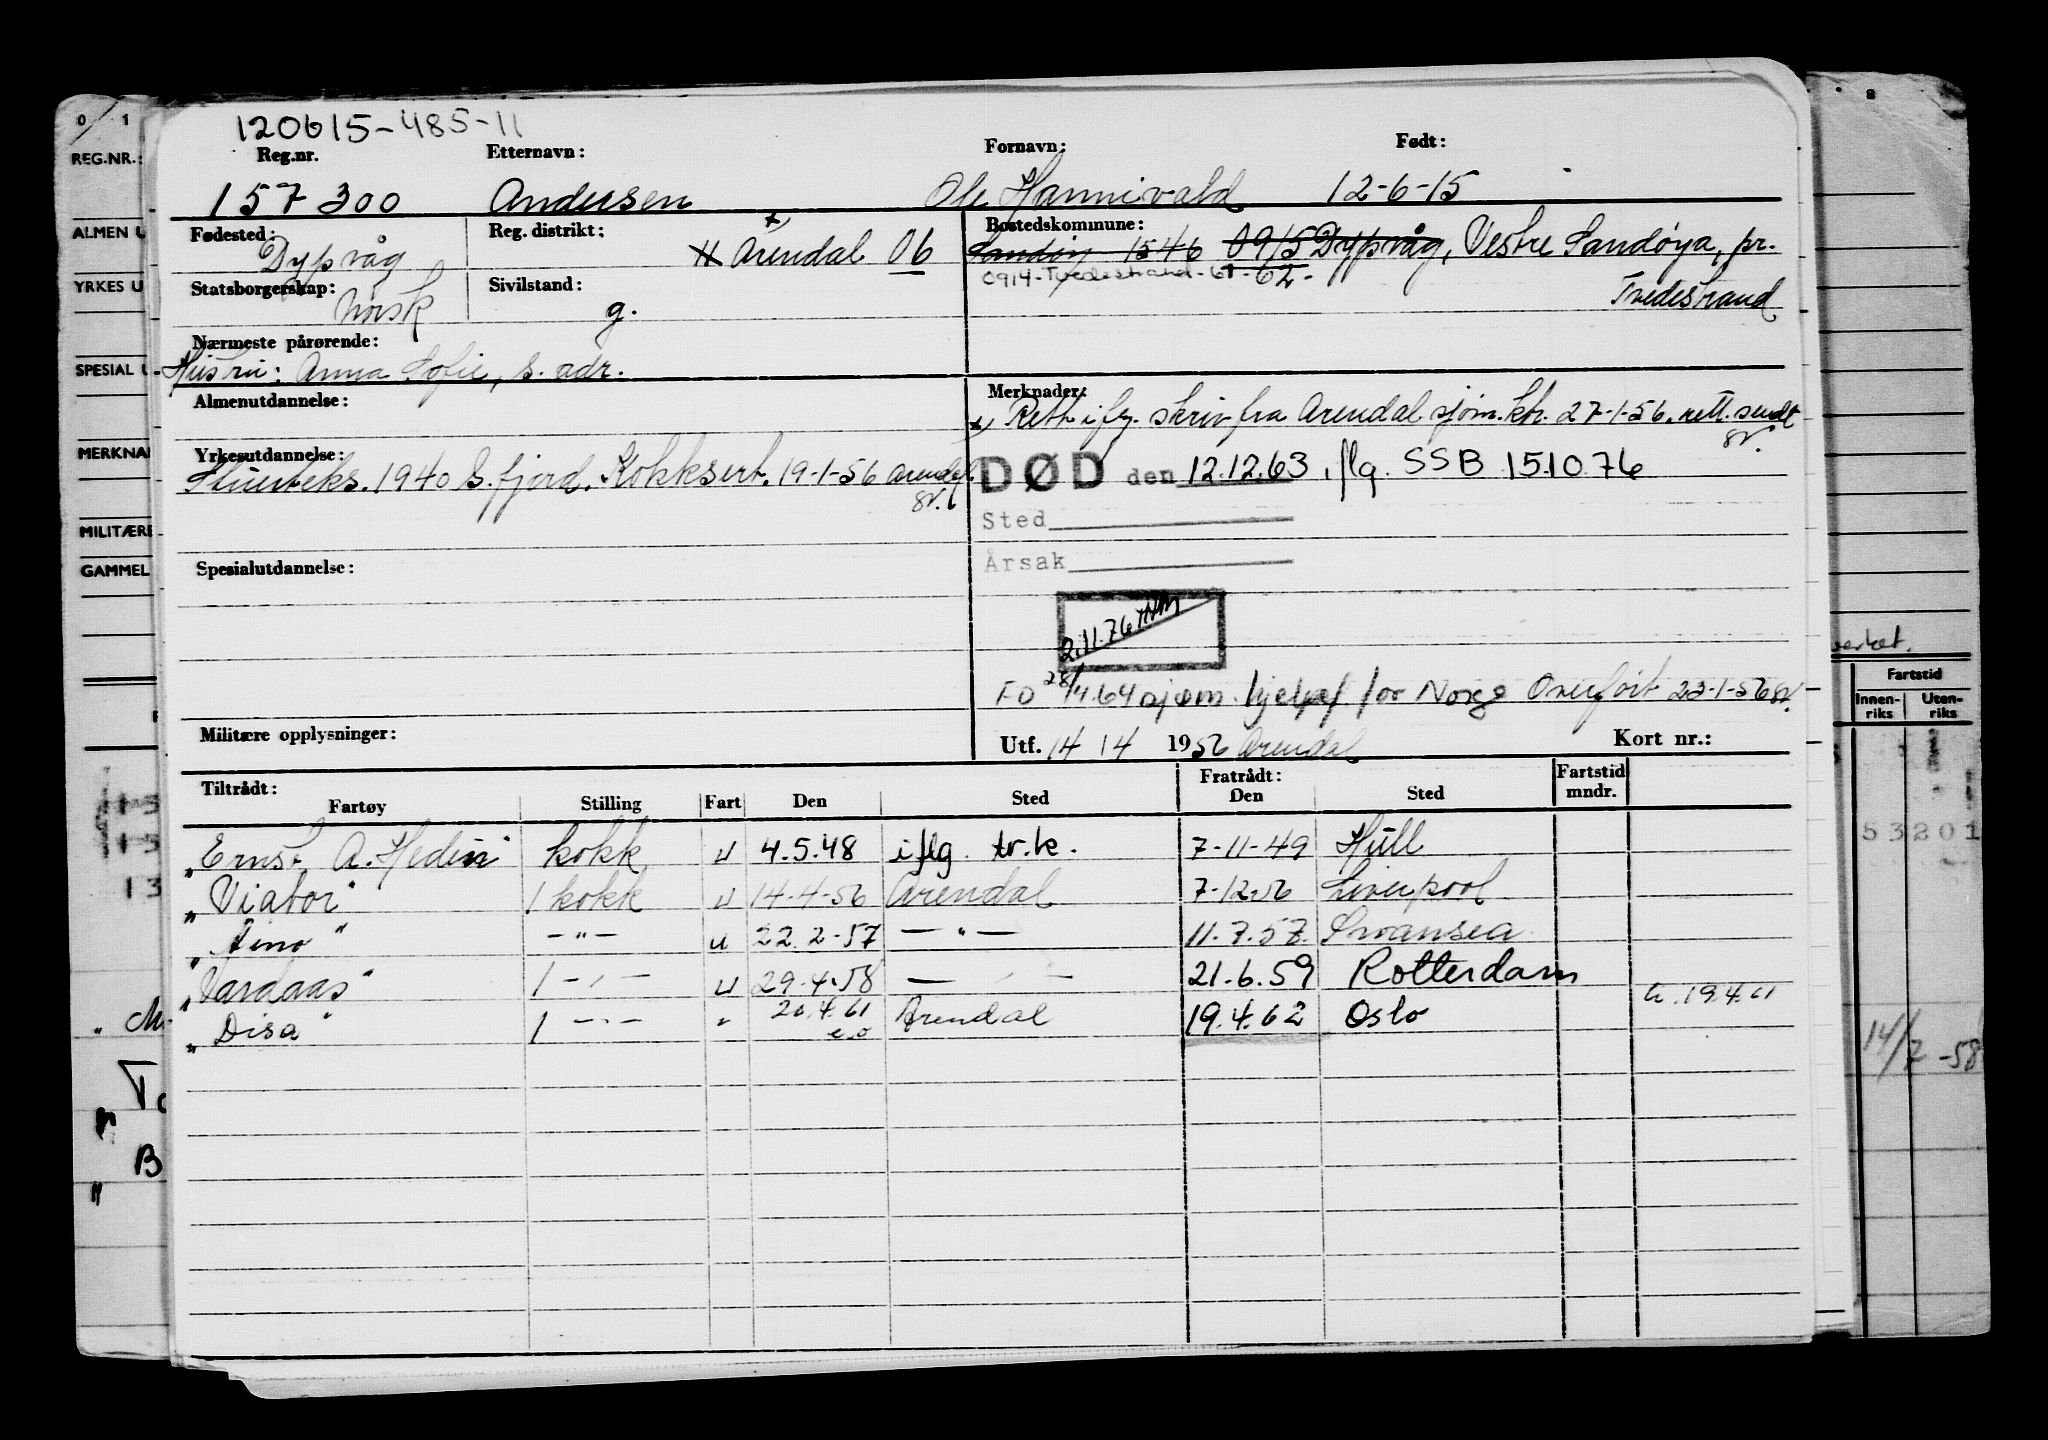 120615-485-11
Reg.nr. Etternavn: Fornavn: Født:
157300 Andersen Ole Hannivald 12-6-15
Fødested: Reg. distrikt: Bostedskommune:
Dypvåg H Arendal 06 Sandøy 1546 0915 Dypvåg, Vestre Sandøya, pr.
0914-Tvedestrand-61-62- Tvedestrand
Statsborgerskap: Sivilstand:
Norsk g.
Nærmeste pårørende:
Hustru: Anna Sofie, s. adr.
Almenutdannelse: Merknader:
x, Rett. iflg. skriv fra Arendal sjøm.ktr. 27-1-56. rett. sendt
Yrkesutdannelse:
Stuerteks. 1940 S.fjord. Kokksert. 19-1-56 Arendal
DØD den 12.12.63, flg. SSB 15.10.76
Sted
Årsak
Spesialutdannelse:
2.11.76
FO 28/4.64 sjøm. hjelpef. for Norge Overført 23-1-56
Militære opplysninger: Utf. 14 / 4 1956 Arendal Kort nr.:
Tiltrådt: Fratrådt: Fartstid
Fartøy Stilling Fart Den Sted Den Sted mndr.
"Ernst A. Hedin" kokk u 4.5.48 iflg. tr.k. 7-11-49 Hull
"Viator" 1 kokk u 14-4-56 Arendal 7-12-56 Liverpool
" " -"- u 22.2-57 -"- 11.7.57. Swansea
"Vardaas" 1 -"- u 29.4.58 -"- 21.6.59 Rotterdam
"Disa" 1 -"- " 20.4.61 Arendal 19.4.62 Oslo 19.4.61
0 1
REG.NR.:
ALMEN U
YRKES U
SPESIAL U
MERKNA
MILITÆRE
GAMMEL
B
8
Fartstid
Innen-riks Uten-riks
53201
14/2-58